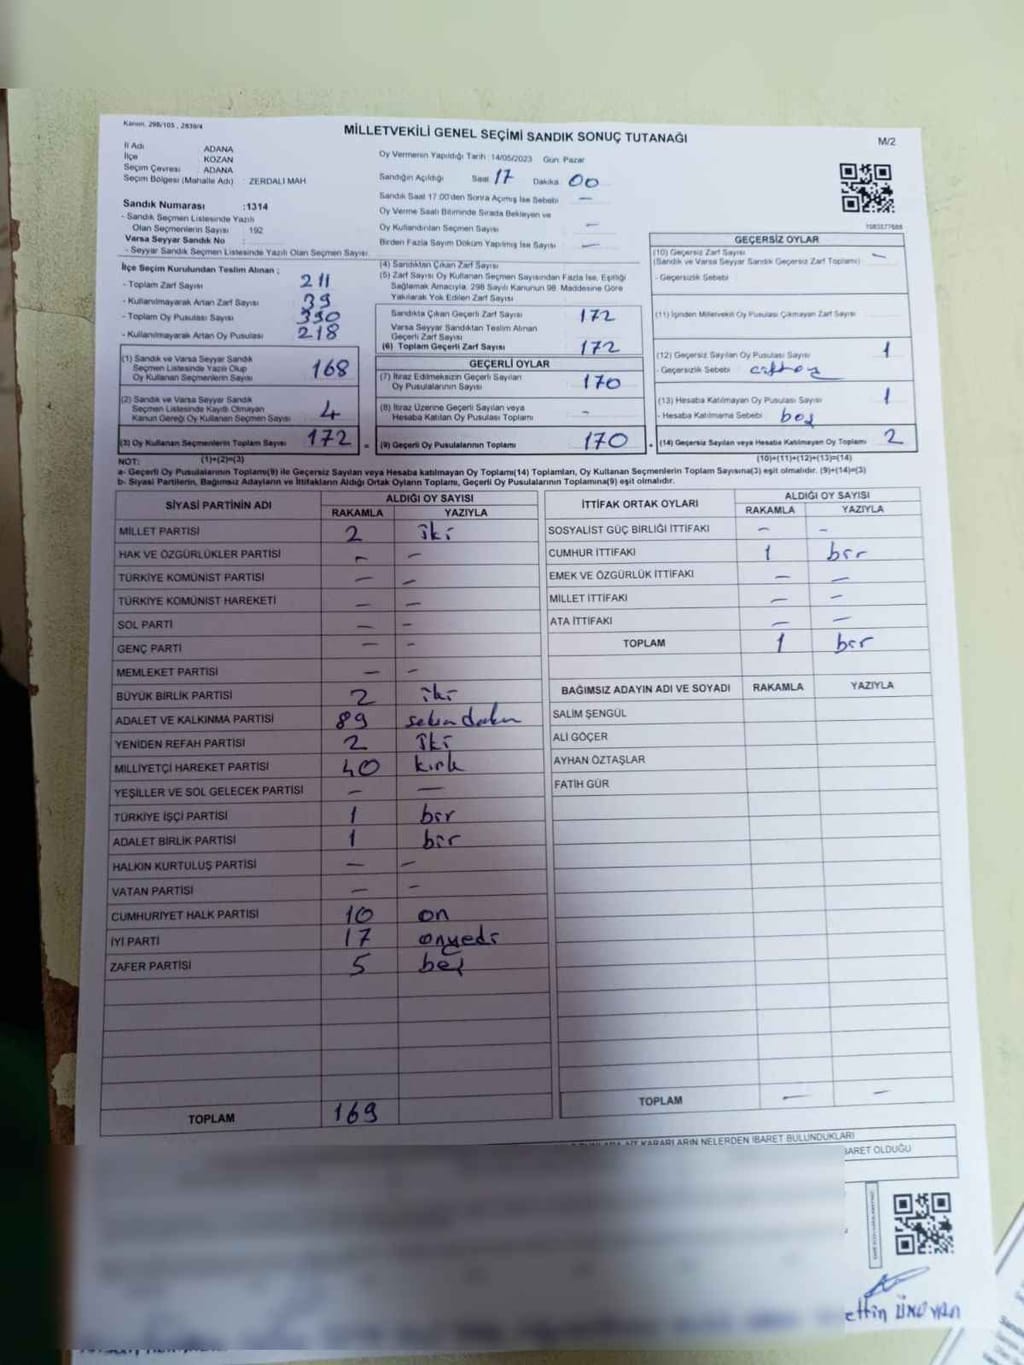 Kanun. 298/105 , 2839/4
MİLLETVEKİLİ GENEL SEÇİMİ SANDIK SONUÇ TUTANAĞI
M/2
İl Adı : ADANA
İlçe : KOZAN
Seçim Çevresi : ADANA
Seçim Bölgesi (Mahalle Adı) : ZERDALİ MAH
Sandık Numarası :1314
- Sandık Seçmen Listesinde Yazılı
Olan Seçmenlerin Sayısı : 192
Varsa Seyyar Sandık No :
- Seyyar Sandık Seçmen Listesinde Yazılı Olan Seçmen Sayısı:
Oy Vermenin Yapıldığı Tarih :14/05/2023 Gün: Pazar
Sandığın Açıldığı Saat 17 Dakika 00
Sandık Saat 17.00'den Sonra Açılmış İse Sebebi —
Oy Verme Saati Bitiminde Sırada Bekleyen ve
Oy Kullandırılan Seçmen Sayısı —
Birden Fazla Sayım Döküm Yapılmış İse Sayısı —
İlçe Seçim Kurulundan Teslim Alınan ;
- Toplam Zarf Sayısı 211
- Kullanılmayarak Artan Zarf Sayısı 39
- Toplam Oy Pusulası Sayısı 390
- Kullanılmayarak Artan Oy Pusulası 218
(1) Sandık ve Varsa Seyyar Sandık
Seçmen Listesinde Yazılı Olup
Oy Kullanan Seçmenlerin Sayısı 168
(2) Sandık ve Varsa Seyyar Sandık
Seçmen Listesinde Kayıtlı Olmayan
Kanun Gereği Oy Kullanan Seçmen Sayısı 4
(3) Oy Kullanan Seçmenlerin Toplam Sayısı 172 =
(4) Sandıktan Çıkan Zarf Sayısı
(5) Zarf Sayısı Oy Kullanan Seçmen Sayısından Fazla İse, Eşitliği
Sağlamak Amacıyla, 298 Sayılı Kanunun 98. Maddesine Göre
Yakılarak Yok Edilen Zarf Sayısı
Sandıkta Çıkan Geçerli Zarf Sayısı 172
Varsa Seyyar Sandıktan Teslim Alınan
Geçerli Zarf Sayısı
(6) Toplam Geçerli Zarf Sayısı 172
GEÇERLİ OYLAR
(7) İtiraz Edilmeksizin Geçerli Sayılan
Oy Pusulalarının Sayısı 170
(8) İtiraz Üzerine Geçerli Sayılan veya
Hesaba Katılan Oy Pusulası Toplamı -
(9) Geçerli Oy Pusulalarının Toplamı 170 +
GEÇERSİZ OYLAR
(10) Geçersiz Zarf Sayısı
(Sandık ve Varsa Seyyar Sandık Geçersiz Zarf Toplamı) —
- Geçersizlik Sebebi
(11) İçinden Milletvekili Oy Pusulası Çıkmayan Zarf Sayısı
(12) Geçersiz Sayılan Oy Pusulası Sayısı 1
- Geçersizlik Sebebi
(13) Hesaba Katılmayan Oy Pusulası Sayısı 1
- Hesaba Katılmama Sebebi boş
(14) Geçersiz Sayılan veya Hesaba Katılmayan Oy Toplamı 2
NOT: (1)+(2)=(3) (10)+(11)+(12)+(13)=(14)
a- Geçerli Oy Pusulalarının Toplamı(9) ile Geçersiz Sayılan veya Hesaba katılmayan Oy Toplamı(14) Toplamları, Oy Kullanan Seçmenlerin Toplam Sayısına(3) eşit olmalıdır. (9)+(14)=(3)
b- Siyasi Partilerin, Bağımsız Adayların ve İttifakların Aldığı Ortak Oyların Toplamı, Geçerli Oy Pusulalarının Toplamına(9) eşit olmalıdır.
SİYASİ PARTİNİN ADI ALDIĞI OY SAYISI
RAKAMLA YAZIYLA
MİLLET PARTİSİ 2 iki
HAK VE ÖZGÜRLÜKLER PARTİSİ — —
TÜRKİYE KOMÜNİST PARTİSİ — —
TÜRKİYE KOMÜNİST HAREKETİ — —
SOL PARTİ — —
GENÇ PARTİ — —
MEMLEKET PARTİSİ — —
BÜYÜK BİRLİK PARTİSİ 2 iki
ADALET VE KALKINMA PARTİSİ 89
YENİDEN REFAH PARTİSİ 2 iki
MİLLİYETÇİ HAREKET PARTİSİ 40 kırk
YEŞİLLER VE SOL GELECEK PARTİSİ — —
TÜRKİYE İŞÇİ PARTİSİ 1 bir
ADALET BİRLİK PARTİSİ 1 bir
HALKIN KURTULUŞ PARTİSİ — —
VATAN PARTİSİ — —
CUMHURİYET HALK PARTİSİ 10 on
İYİ PARTİ 17 onyedi
ZAFER PARTİSİ 5 beş
TOPLAM 169
İTTİFAK ORTAK OYLARI ALDIĞI OY SAYISI
RAKAMLA YAZIYLA
SOSYALİST GÜÇ BİRLİĞİ İTTİFAKI — —
CUMHUR İTTİFAKI 1 bir
EMEK VE ÖZGÜRLÜK İTTİFAKI — —
MİLLET İTTİFAKI — —
ATA İTTİFAKI — —
TOPLAM 1 bir
BAĞIMSIZ ADAYIN ADI VE SOYADI RAKAMLA YAZIYLA
SALİM ŞENGÜL
ALİ GÖÇER
AYHAN ÖZTAŞLAR
FATİH GÜR
TOPLAM — —
KARARLARIN NELERDEN İBARET BULUNDUKLARI
BARET OLDUĞU
ettin